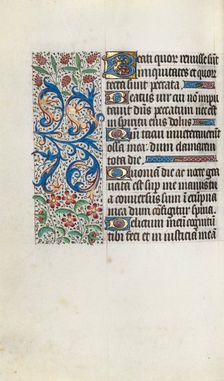 Beati quor remisse sūt
iniquitates et quorū
tecta sunt peccata.
Beatus uir cui nō impu
tauit dn̄s peccatum nec est
in spiritu eius dolus
Qm̄ tacui inueterauerūt
ossa mea: dum clamarem
tota die.
Quoniā die ac nocte gra
uata est sup me manus tua
cōuersus sum ī erūpna
mea dum cōfigitur spina.
Delictum meū cognitū
tibi feci et in iusticiā meā